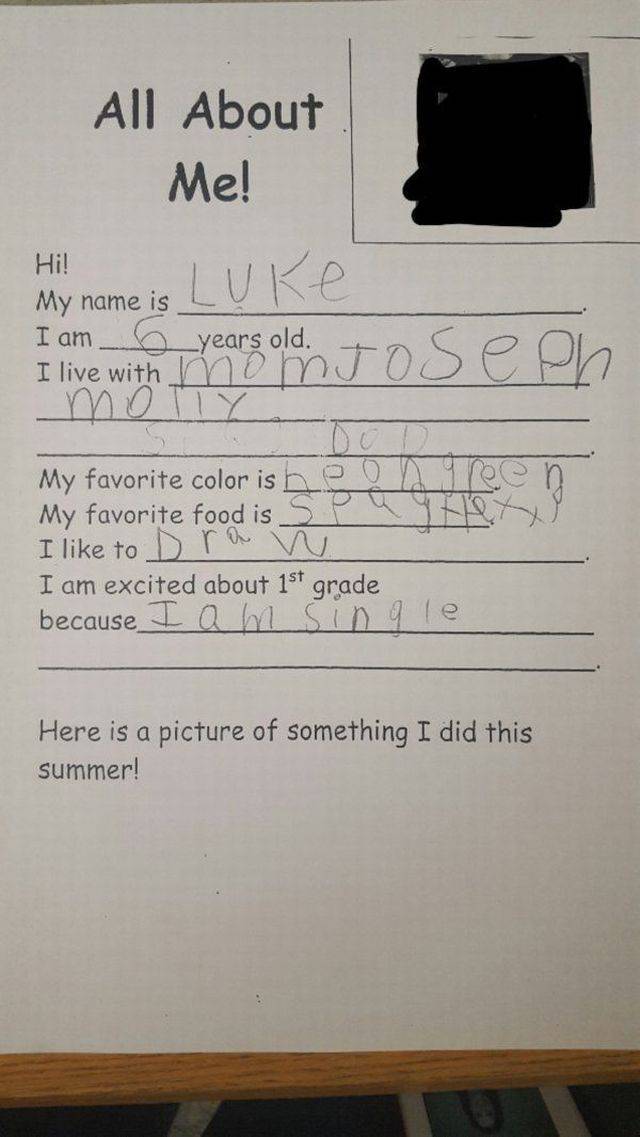 All About
Me!
Hi!
My name is LUKe.
I am 6 years old.
I live with mom JOSePh
mollY
DOD.
My favorite color is neon green
My favorite food is
I like to Draw.
I am excited about 1st grade
because I am single
Here is a picture of something I did this
summer!